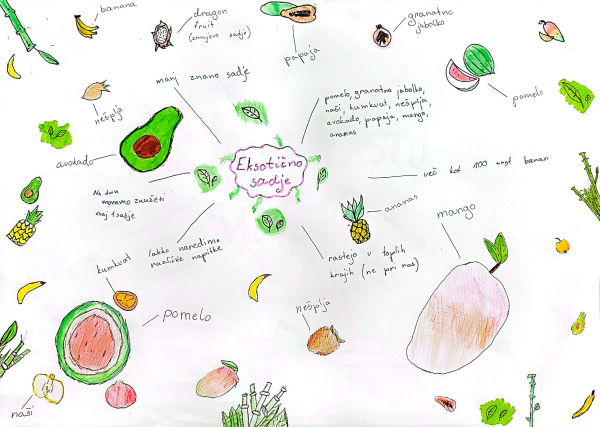 banana
dragon
fruit
(zmajevo sadje)
papaja
granatno
jabolko
manj znano sadje
pomelo, granatno jabolko,
naši, kumkvat, nešplja,
avokado, papaja, mango,
ananas
pomelo
nešplja
avokado
Eksotično
sadje
več kot 100 vrst banan
Na dan
moramo zaužiti
vsaj 1 sadje
ananas
mango
lahko naredimo
različne napitke
rastejo v toplih
krajih (ne pri nas)
kumkvat
pomelo
nešplja
naši